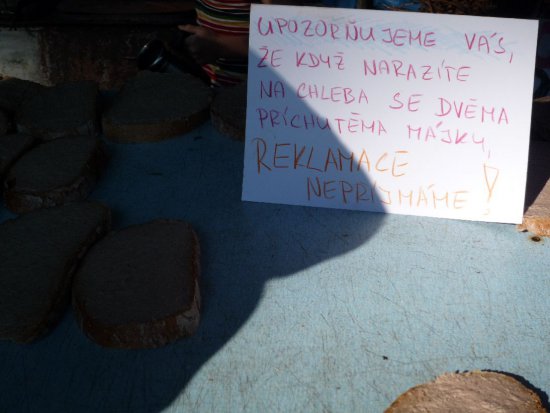 UPOZORŇUJEME VÁS,
ŽE KDYŽ NARAZÍTE
NA CHLEBA SE DVĚMA
PŘÍCHUTĚMA MÁJKY,
REKLAMACE
NEPŘIJMÁME!